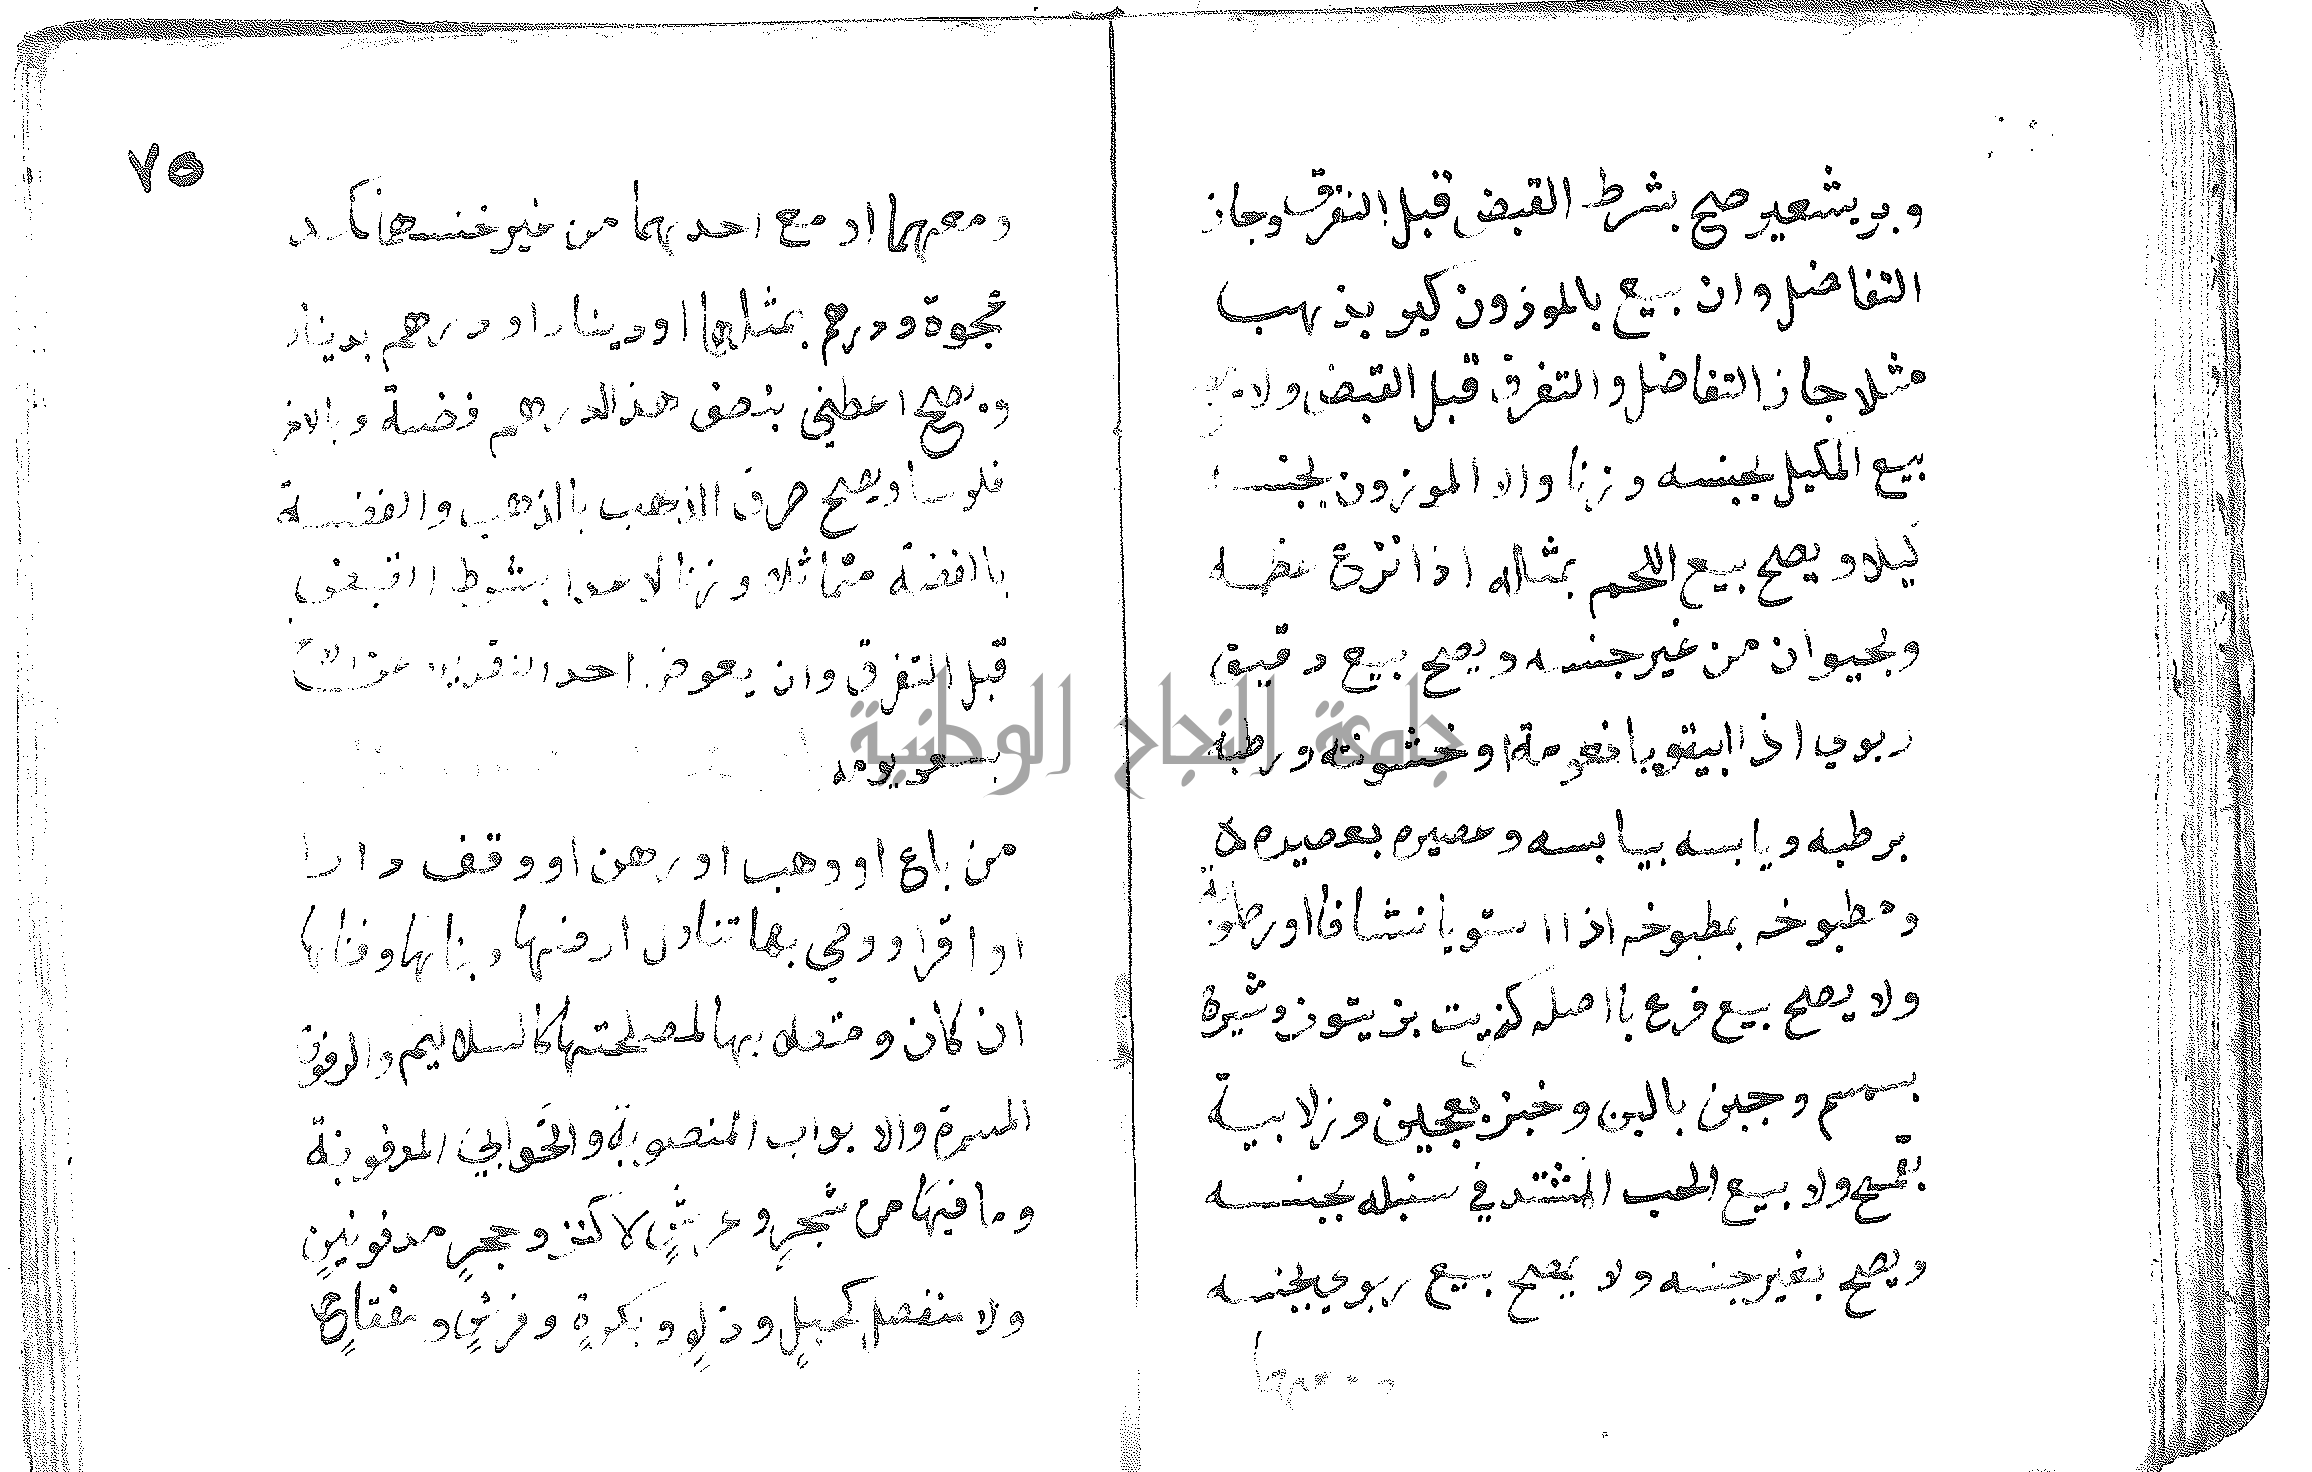 وبر بشعير صح بشرط القبض قبل التفرق وجاز
التفاضل وان بيع بالموزون كبر بذهب
مثلا جاز التفاضل والتفرق قبل القبض ولا
بيع المكيل بجنسه وزنا ولا الموزون بجنسه
كيلا ويصح بيع اللحم بمثله اذا نزع عظمه
وبحيوان من غير جنسه ويصح بيع دقيق
ربوي اذا استويا نعومة او خشونة ورطبه
برطبه ويابسه بيابسه وعصيره بعصيره
ومطبوخه بمطبوخه اذا استويا نشافا او رطوبة
ولا يصح بيع فرع باصله كزيت بزيتون وشيرة
بسمسم وجبن بالبن وخبز بعجين وزلابية
بقمح ولا بيع الحب المشتد في سنبله بجنسه
ويصح بغير جنسه ولا يصح بيع ربوي بجنسه
ومعهما
٧٥
ومعهما او مع احدهما من غير جنسهما كمد
عجوة ودرهم بمثلهما او دينار او درهم بدينار
ويصح اعطني بنصف هذا الدرهم فضة وبالاخر
فلوسا ويصح صرف الذهب بالذهب والفضة
بالفضة متماثلا وزنا لا عدا بشرط القبض
قبل التفرق وان يعوض احد النقدين عن
بسعر يومه
من باع او وهب او رهن او وقف دارا
او اقر او وصي بها تناول ارضها وبناها وفناها
ان كان ومتصلا بها لمصلحتها كالسلاليم والرفوف
المسمرة والابواب المنصوبة والخوابي المدفونة
وما فيها من شجرٍ وعريشٍ لا كنز وحجرٍ مدفونينٍ
ولا منفصل كحبلٍ ودلوٍ وبكرةٍ وفرشٍ ومفتاحٍ
جامعة النجاح الوطنية